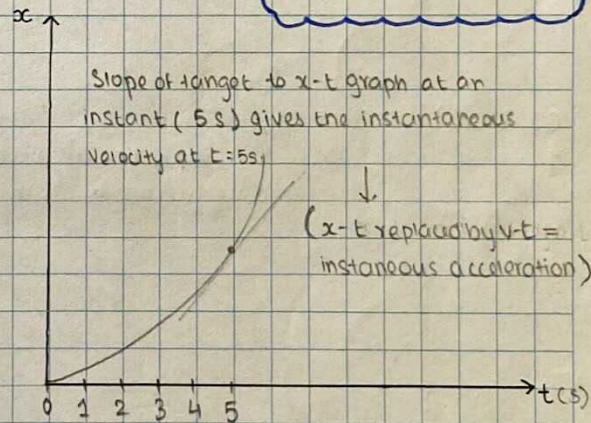 x
Slope of tanget to x-t graph at an
instant (5s) gives the instantaneous
velocity at t=5s
(x-t replaced by v-t =
instaneous acceleration)
t(s)
0 1 2 3 4 5